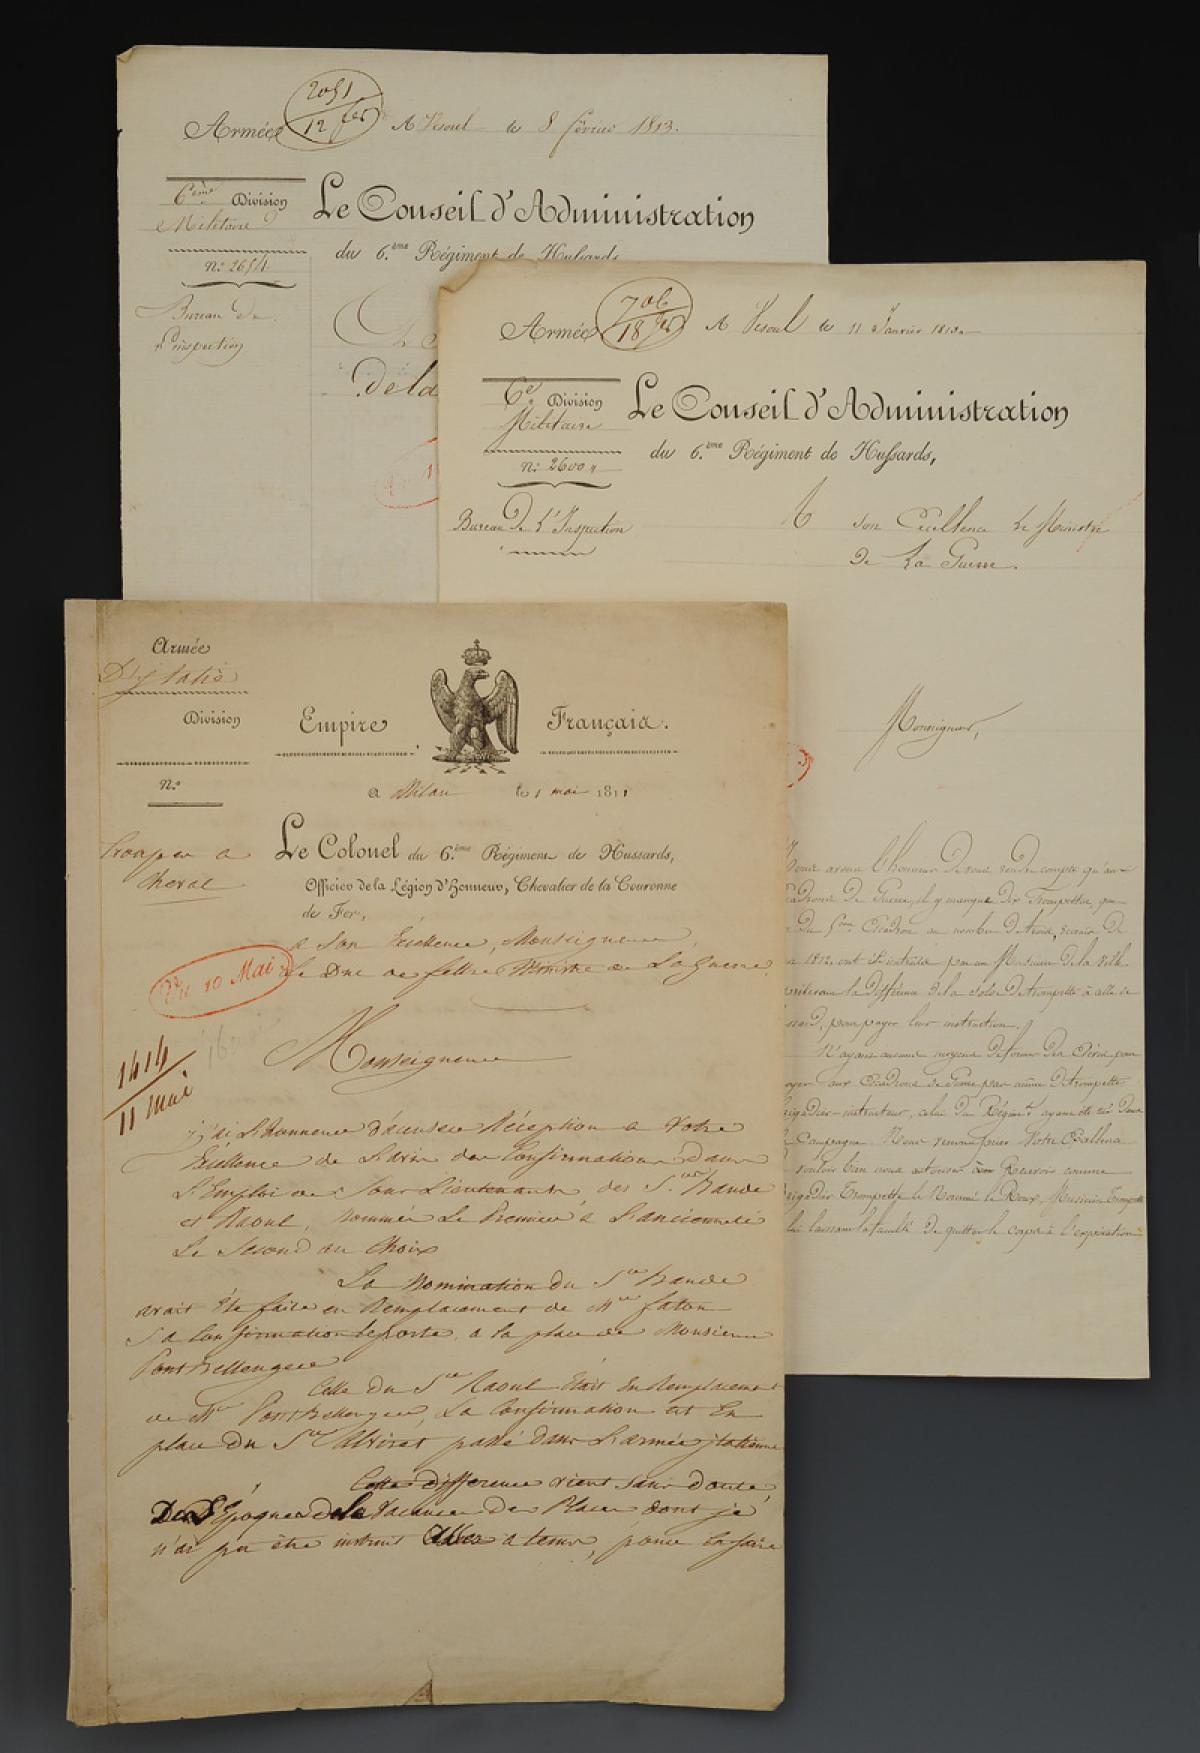 2051
12 fer
Armée
A Vesoul le 8 février 1813.
6ème Division
Militaire
Le Conseil d'Administration
du 6.ème Régiment de Hussards
N.° 2654
Bureau de
l'inspection
de la
706
18 fer
Armée
A Vesoul le 11 Janvier 1813
6e Division
Militaire
Le Conseil d'Administration
du 6.ème Régiment de Hussards,
N.° 2600
Bureau De L'Inspection
A son Excellence Le Ministre
De La Guerre.
Monseigneur,
Nous avons l'honneur De vous rendre compte qu'aux
De Guerre, il y manque Dix Trompettes, que
Du 5me Escadron au nombre De trois,
1812, ont été instruits par un Musicien De la ville
la Différence De la solde De trompette à celle de
pour payer leur instruction.
N'ayant aucun moyen De former Des Elèves pour
aux Escadrons De Guerre pas même De trompette
brigadier-instructeur, celui Du Régimt ayant été
Campagne Nous venons prier Votre Excellence
vouloir bien nous autoriser à Recevoir comme
Brigadier Trompette le Nommé le Roux, Musicien Trompette
lui laissant la faculté De quitter le corps à l'expiration
Armée
D'Italie
Division
N.°
Empire Français.
a Milan le 1 mai 1811
Troupes a
Cheval
Le Colonel du 6.ème Régiment de Hussards,
Officier de la Légion d'Honneur, Chevalier de la Couronne
de Fer,
a Son Excellence, Monseigneur
Le Duc de feltre Ministre de La Guerre.
Du 10 Mai
1414
11 mai
Monseigneur
j'ai L'honneur D'accuser Réception a Votre
Excellence de L'avis des Confirmations Dans
L'Emploi de Sous Lieutenants, des Srs Bande
et Raoul, nommés Le Premier a L'ancienneté
Le Second au Choix
La Nomination du Sr Bande
avait été faite en Remplacement de Mr
Sa Confirmation le porte, a la place de Monsieur
Pontbellenger
Celle du Sr Raoul était En Remplacement
de Mr Pontbellenger, La Confirmation est En
place du Sr passé Dans L'armée jtalienne
Cette différence vient sans doute,
Des Epoques de la Vacance Des Places dont je
n'ai pu être instruit a tems, pour En faire